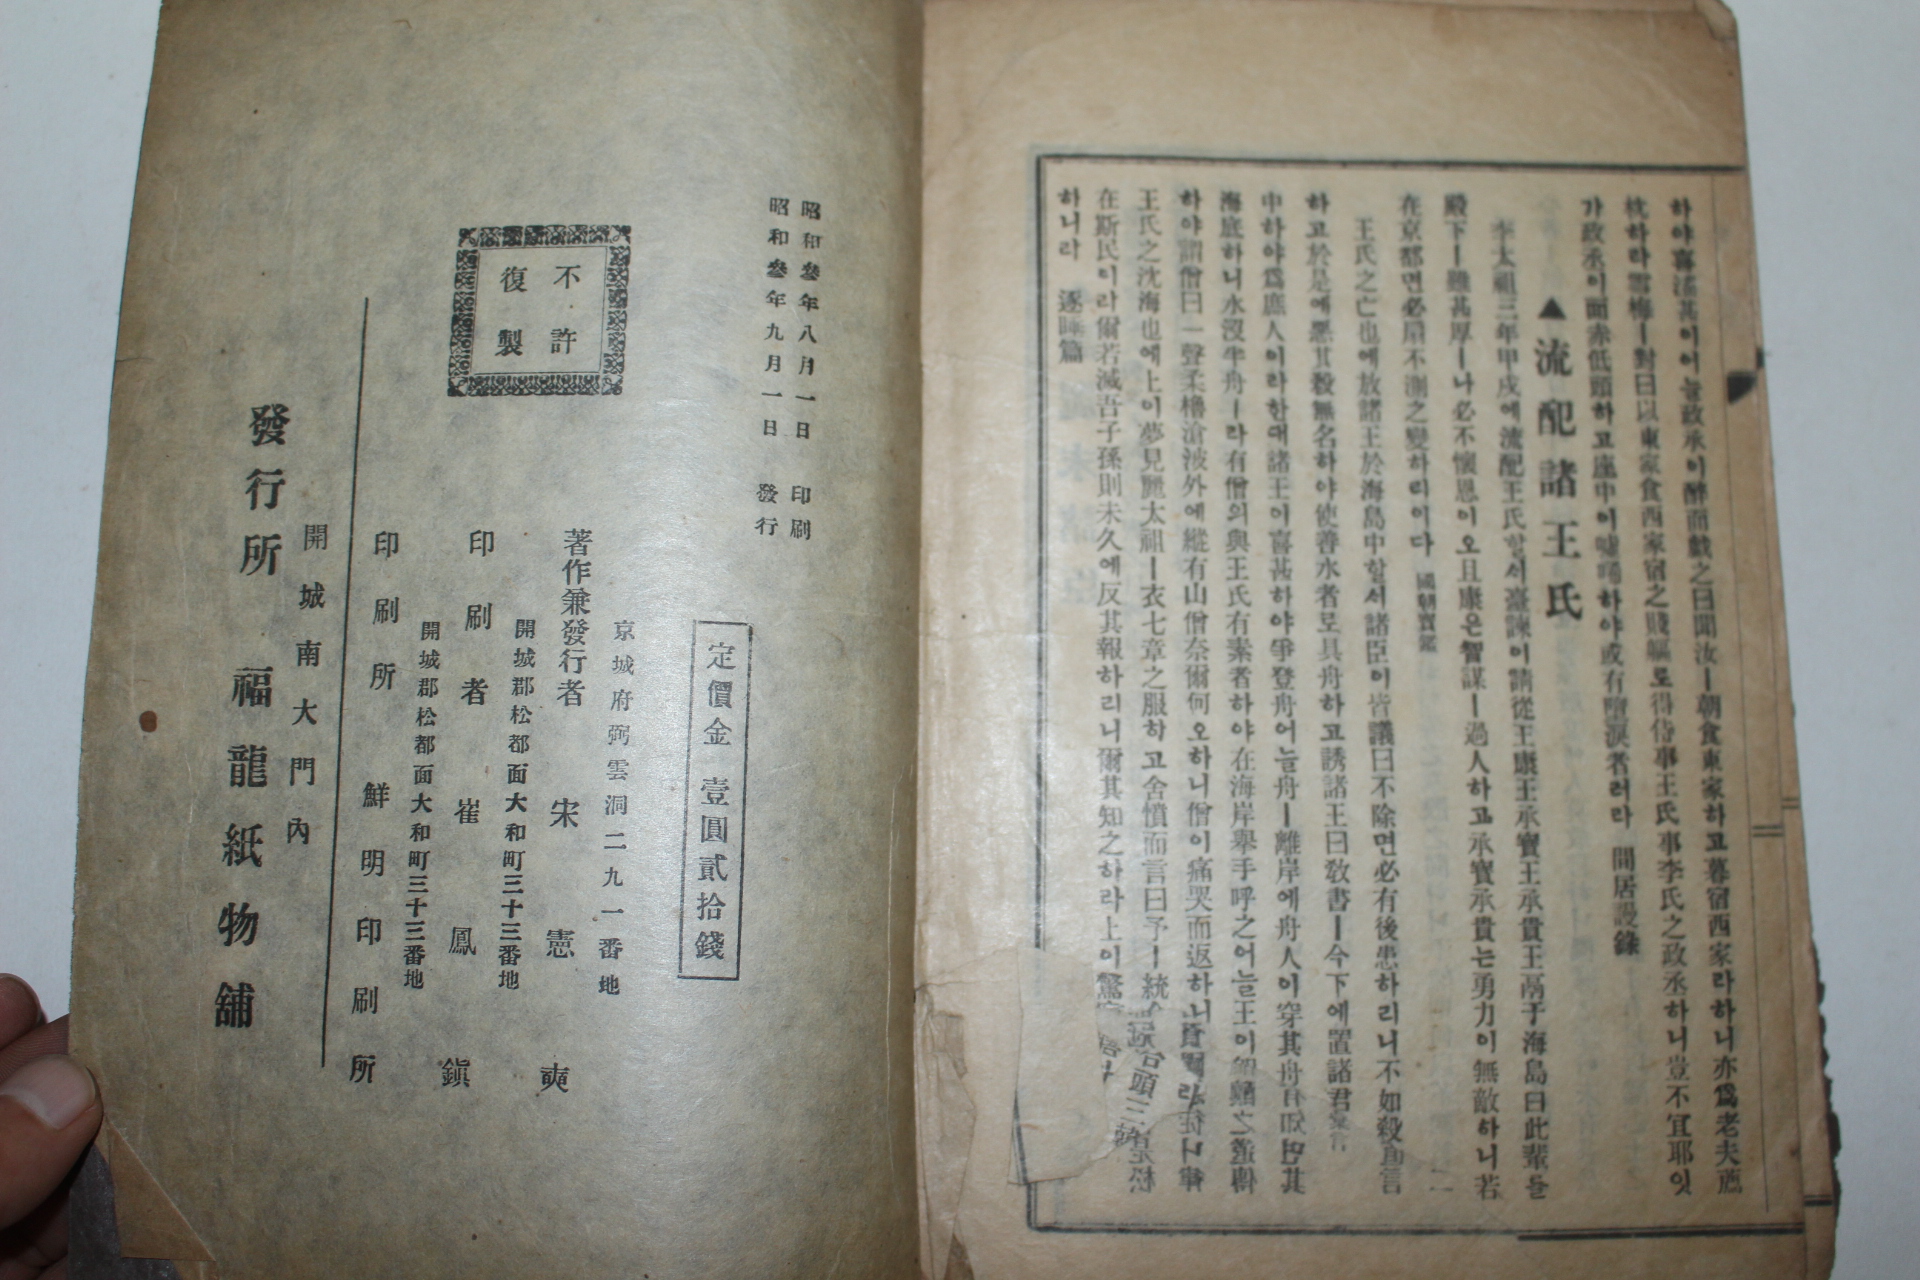 하야喜滿甚이어늘政承이醉而戱之曰聞汝ㅣ朝食東家하고暮宿西家라하니亦爲老夫薦
枕하라雪梅ㅣ對曰以東家食西家宿之賤軀로得侍事王氏事李氏之政丞하니豈不宜耶잇
가政丞이面赤低頭하고座中이噓唏하야或有墮淚者러라 閒居謾錄
▲流配諸王氏
李太祖三年甲戌에流配王氏할서臺諫이請從王康王承寶王承貴王鬲于海島曰此輩들
殿下ㅣ雖甚厚ㅣ나必不懷恩이오且康은智謀ㅣ過人하고承寶承貴는勇力이無敵하니若
在京都면必扇不測之變하리이다 國朝寶鑑
王氏之亡也에放諸王於海島中할서諸臣이皆議曰不除면必有後患하리니不如殺爲言
하고於是에惡其殺無名하야使善水者로具舟하고誘諸王曰敎書ㅣ今下에置諸君
中하야爲庶人이라한대諸王이喜甚하야爭登舟어늘舟ㅣ離岸에舟人이穿其舟
海底하니水沒半舟ㅣ라有僧의與王氏有素者하야在海岸擧手呼之어늘王이
하야謂僧曰一聲柔櫓滄波外에縱有山僧奈爾何오하니僧이痛哭而返하니
王氏之沈海也에上이夢見麗太祖ㅣ衣七章之服하고含憤而言曰予ㅣ統
在斯民이라爾若滅吾子孫則未久에反其報하리니爾其知之하라上이驚
하니라 逐睡篇
昭和參年八月一日 印刷
昭和參年九月一日 發行
定價金壹圓貳拾錢
不許
復製
京城府弼雲洞二九一番地
著作兼發行者 宋憲奭
開城郡松都面大和町三十三番地
印刷者 崔鳳鎭
開城郡松都面大和町三十三番地
印刷所 鮮明印刷所
開城南大門內
發行所 福龍紙物舖